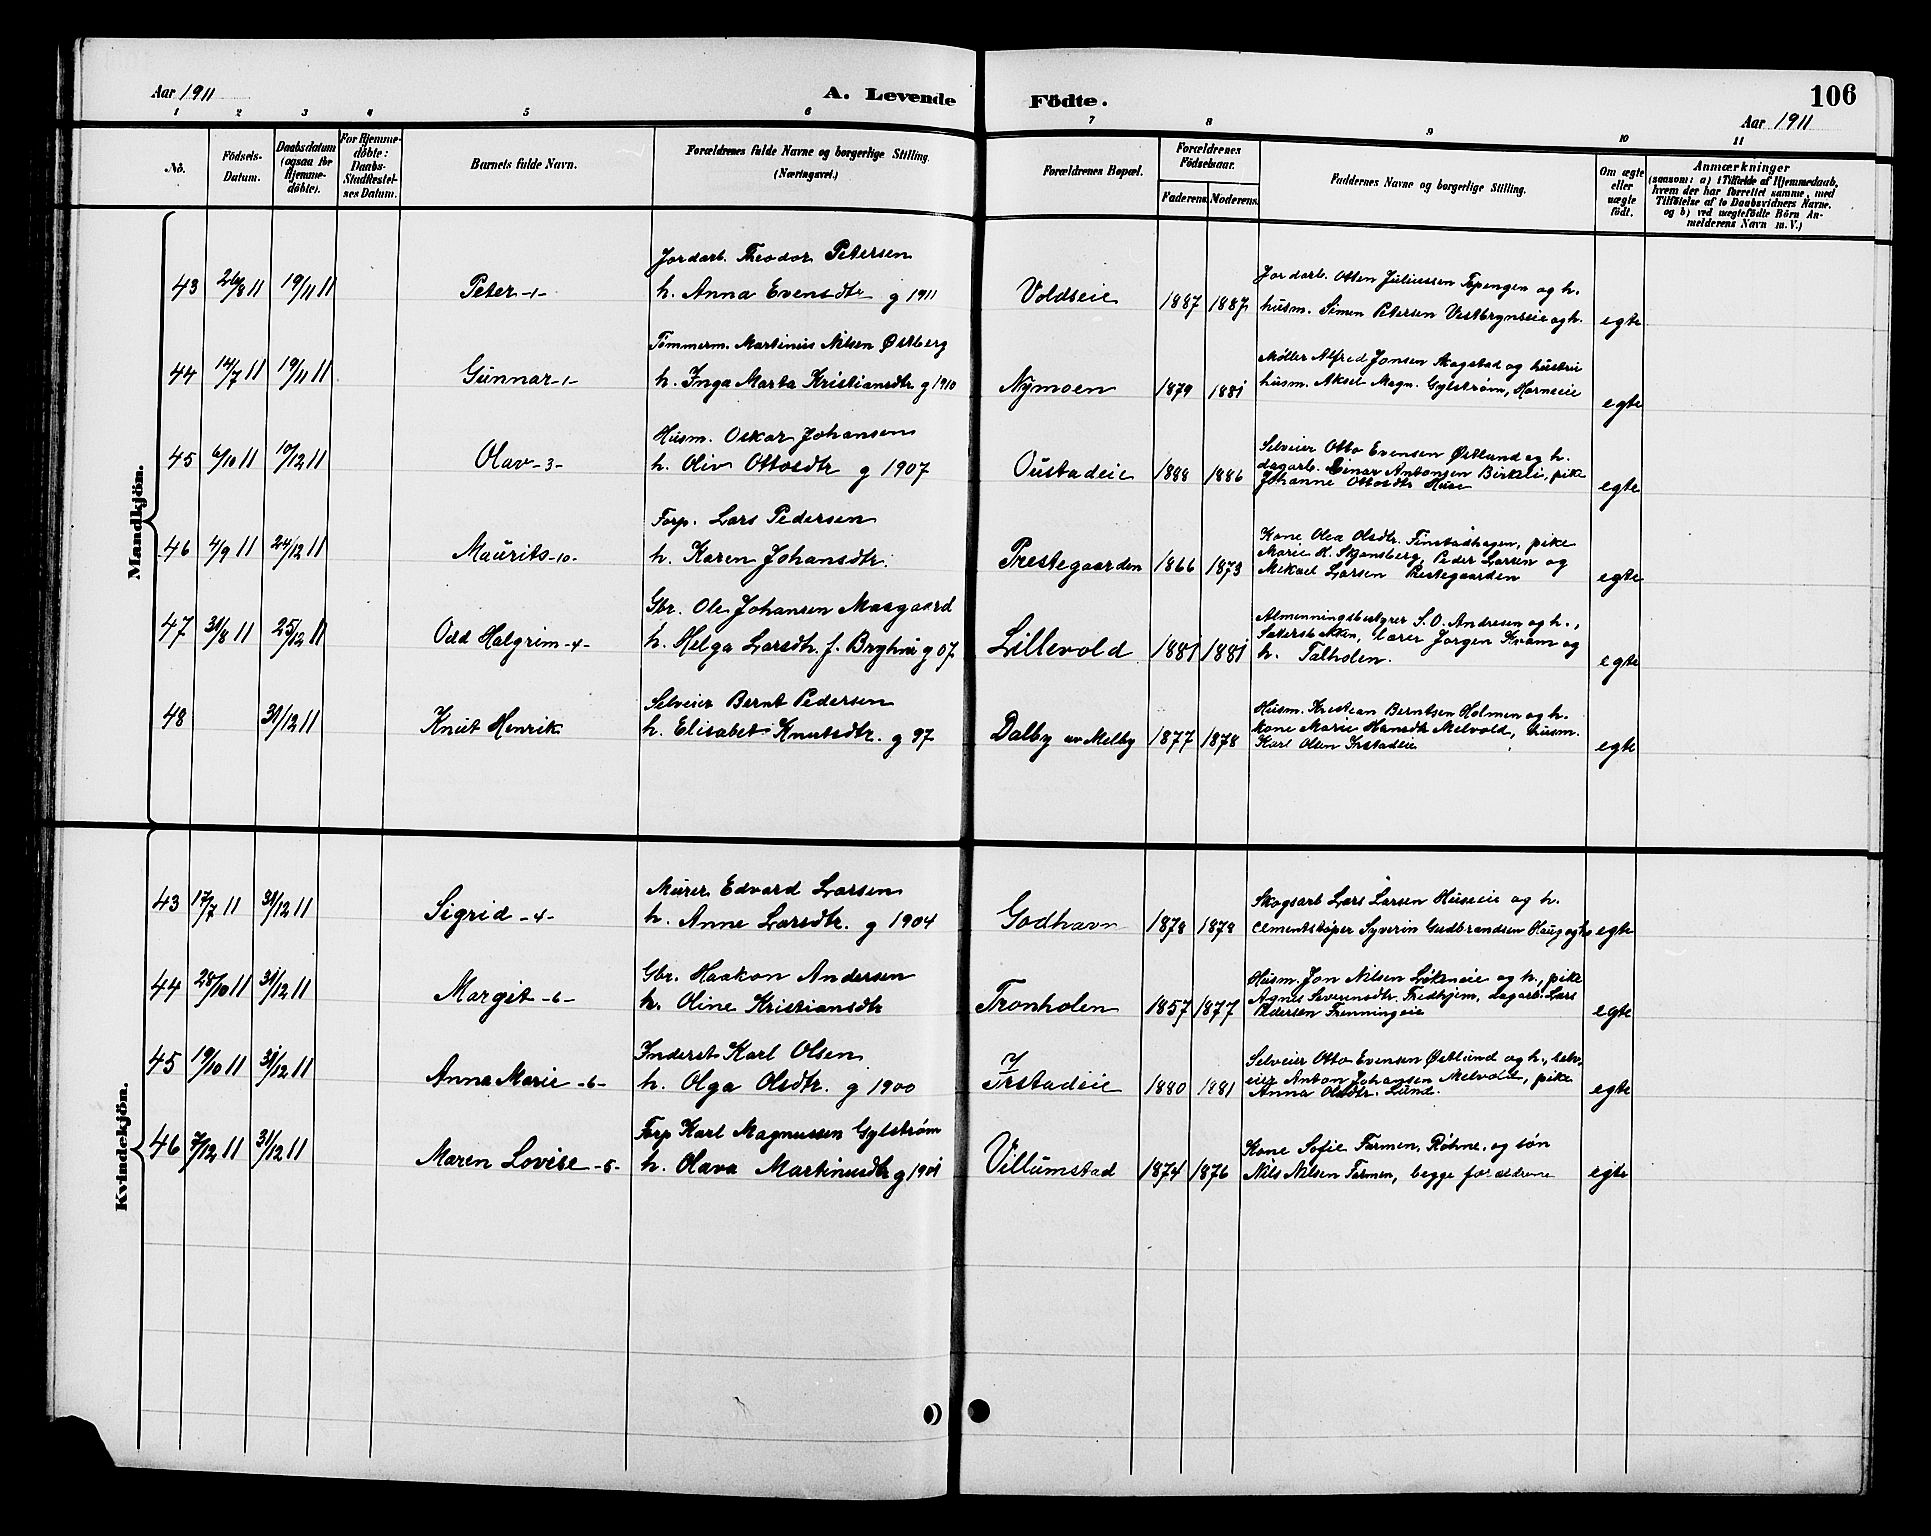 Aar 1911
A. Levende
Födte.
106
Aar 1911
1 2 3 4 5 6 7 8 9 10 11
No.
Födsels-Datum.
Daabsdatum (ogsaa for Hjemmedöbte).
For Hjemmedöbte: Daabs-Stadfæstelses Datum.
Barnets fulde Navn.
Forældrenes fulde Navne og borgerlige Stilling. (Næringsvei.)
Forældrenes Bopæl.
Forældrenes Födselsaar.
Faderens. Moderens.
Faddernes Navne og borgerlige Stilling.
Om ægte eller uægte födt.
Anmærkninger
(saasom: a) i Tilfælde af Hjemmedaab, hvem der har forrettet samme, med Tilföielse af to Daabsvidners Navne, og b) ved uægtefödte Börn Anmelderens Navn m. V.)
Mandkjön.
Jordarb. Theodor Petersen
43 26/8 11 19/11 11 Peter -1- h. Anna Evensdtr g 1911 Voldseie 1887 1887 Jordarb. Otten Juliussen Tepengen og h.
husm. Simen Petersen Vestbrynseie og h. egte
Tømmerm. Martinius Nilsen Østberg
44 12/7 11 19/11 11 Gunnar -1- h. Inga Marta Kristiansdtr g 1910 Nymoen 1879 1881 Møller Alfred Jonsen Skogstad og hustru
husm. Aksel Magn. Gylstrøm, Horneeie egte
Husm. Oskar Johansen
45 6/10 11 10/12 11 Olav -3- h. Oliv Ottosdtr g 1907 Oustadeie 1888 1886 Selveier Otto Evensen Østlund og h.
dagarb. Einar Antonsen Birkeli, pike
Johanne Ottosdtr Huse egte
Forp. Lars Pedersen
46 4/9 11 24/12 11 Maurits -10- h. Karen Johansdtr. Prestegaarden 1866 1873 Kone Olea Olsdtr. Finstadhagen, pike
Marie H. Skjønsberg, Peder Larsen og
Mikael Larsen Prestegaarden egte
Gbr. Ole Johansen Maagaard
47 31/8 11 25/12 11 Odd Halgrim -4- h. Helga Larsdtr. f. Bryhni g 07 Lillevold 1881 1881 Almenningsbestyrer S. O. Andresen og h.,
Sæterbakken, lærer Jørgen Kvam og
h. Talholen. egte
Selveier Bernt Pedersen
48 31/12 11 Knut Henrik h. Elisabet Knutsdtr. g 97 Dalby av Melby 1877 1878 Husm. Kristian Berntsen Holmen og h.
kone Marie Hansdtr Melvold, husm.
Karl Olsen Irstadeie egte
Kvindekjön.
Murer Edvard Larsen
43 17/7 11 31/12 11 Sigrid -4- h. Anne Larsdtr. g 1904 Godhavn 1878 1879 Skogsarb Lars Larsen Huseeie og h.
cementstøper Syverin Gudbrandsen Haug og h. egte
Gbr. Haakon Andersen
44 28/10 11 31/12 11 Margit -6- h. Oline Kristiansdtr Tronholen 1857 1877 Husm. Jon Nilsen Løkneie og h., pike
Agnes Severinsdtr. Fredhjem, dagarb. Lars
Pedersen Frenningeie egte
Inderst Karl Olsen
45 19/10 11 31/12 11 Anna Marie -6- h. Olga Olsdtr. g 1900 Irstadeie 1880 1881 Selveier Otto Evensen Østlund og h., selv-
eier Anton Johansen Melvold, pike
Anna Olsdtr. Lund. egte
Forp Karl Magnussen Gylstrøm
46 7/12 11 31/12 11 Maren Lovise -5- h. Olava Martinusdtr g 1901 Villumstad 1874 1876 Kone Sofie Farmen, Røhne, og søn
Nils Nilsen Farmen, begge forældrene egte